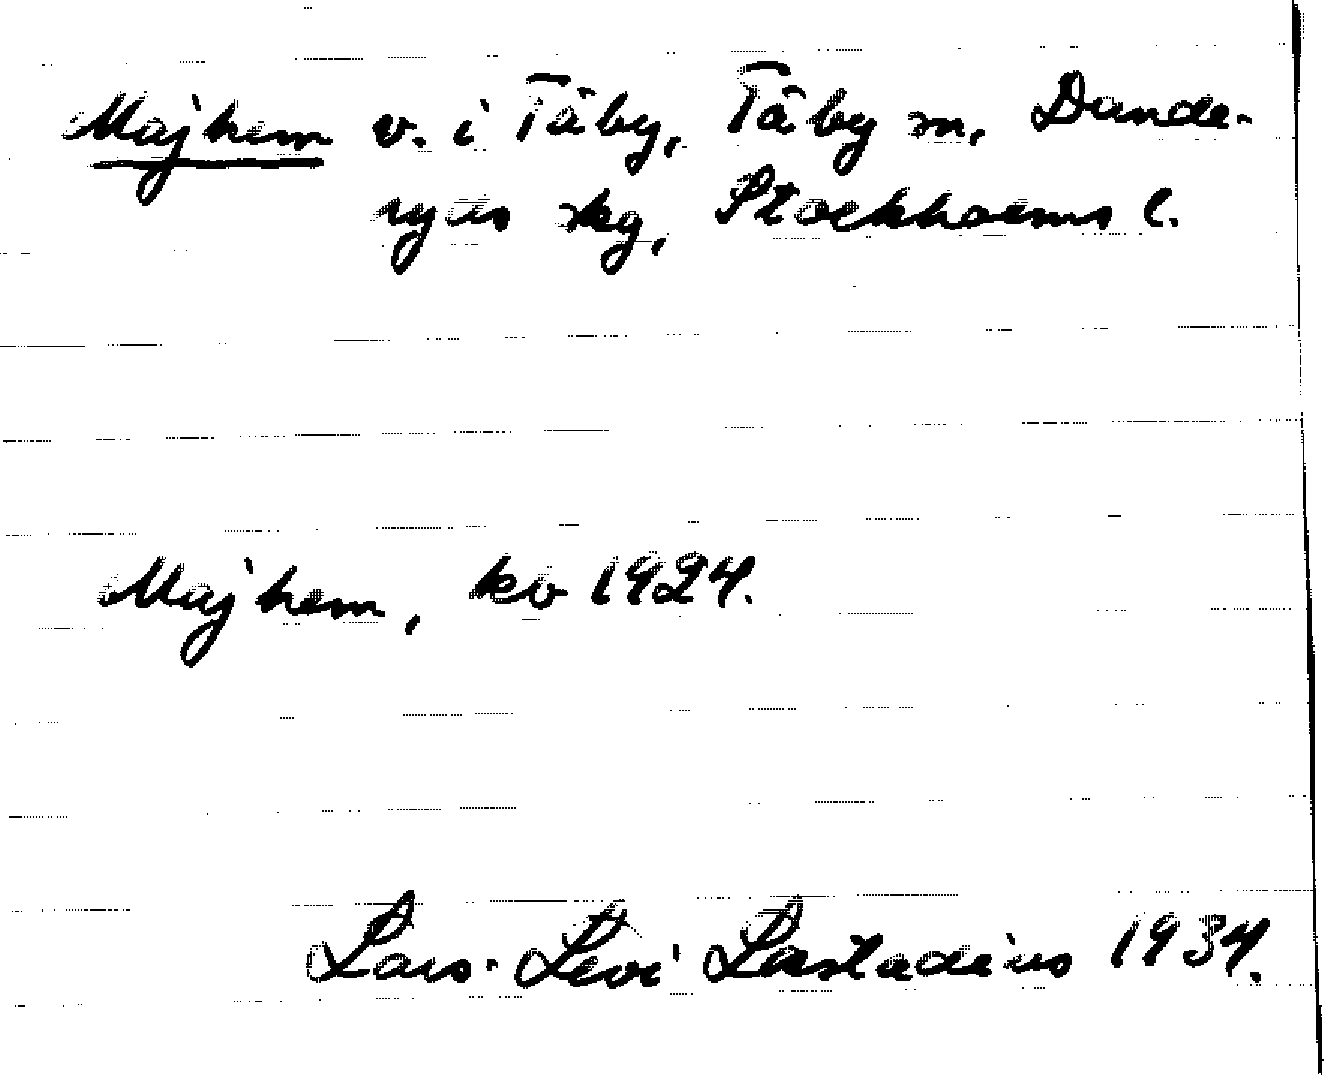 Majhem v. i Täby, Täby sn, Dande-
ryds skg, Stockholms l.
Majhem, kv 1924.
Lars-Levi Læstadius 1934.